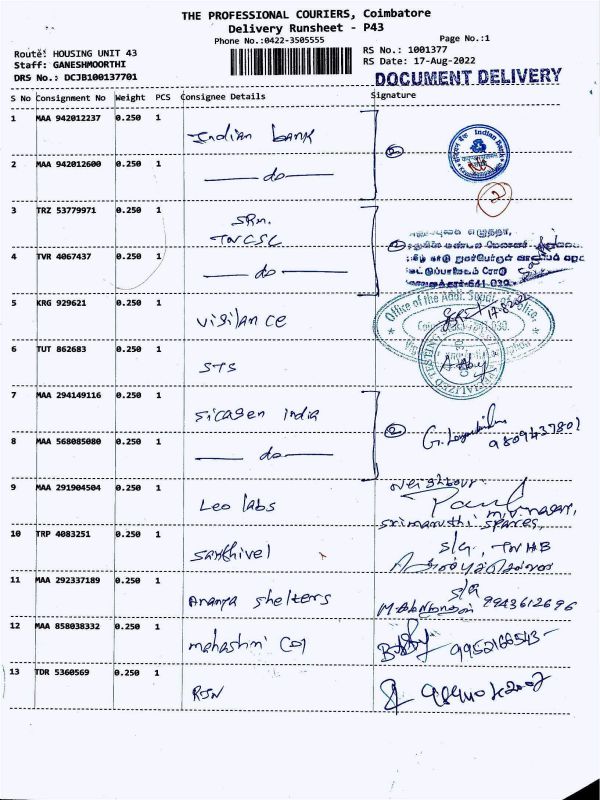 THE PROFESSIONAL COURIERS, Coimbatore
Delivery Runsheet - P43
Phone No.:0422-3505555
Page No.:1
Route: HOUSING UNIT 43
RS No.: 1001377
Staff: GANESHMOORTHI
RS Date: 17-Aug-2022
DRS No.: DCJB100137701
DOCUMENT DELIVERY
S No Consignment No Weight PCS Consignee Details Signature
1 MAA 942012237 0.250 1 Indian bank
2
Indian Bank
2 MAA 942012600 0.250 1 do
2
3 TRZ 53779971 0.250 1 SRm. TNCSC
2
4 TVR 4067437 0.250 1 do
641 030
5 KRG 929621 0.250 1 vigilance
Office of the Addl. Supdt. of Police,
17.8.2022
6 TUT 862683 0.250 1 STS
7 MAA 294149116 0.250 1 Sicagen India
2
9809437801
8 MAA 568085080 0.250 1 do
9 MAA 291904504 0.250 1 Leo labs
Neighbour
Paul
srimaruthi spares,
10 TRP 4083251 0.250 1 Sakthivel
s/g., TNHB
11 MAA 292337189 0.250 1 Ananya shelters
s/g
9943612696
12 MAA 858038332 0.250 1
9952166543
13 TDR 5360569 0.250 1